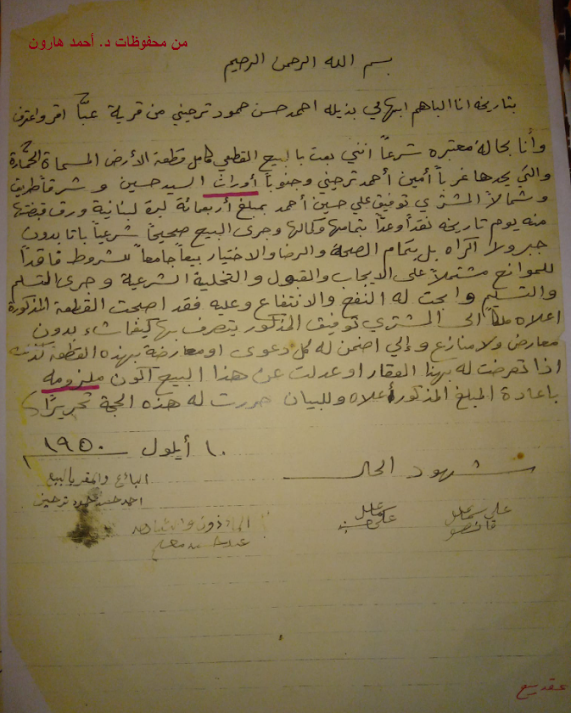 من محفوظات د. أحمد هارون
بسم الله الرحمن الرحيم
بتاريخه انا الباهم ابهامي بذيله احمد حسن حمود ترحيني من قرية عبّا اقر واعترف
وأنا بحالة معتبره شرعاً انني بعت بالبيع القطعي كامل قطعة الأرض المسماة الحمّارة
والتي يحدها غرباً أمين أحمد ترحيني وجنوباً أوراث السيد حسين وشرقاً طريق
وشمالاً المشتري توفيق علي حسين أحمد بمبلغ أربعمائة ليرة لبنانية ورق قبضتها
منه يوم تاريخه نقداً وعداً بتمامها وكمالها وجرى البيع صحيحاً شرعياً باتا بدون
جبر ولا اكراه بل بتمام الصحة والرضا والاختيار بيعاً جامعاً للشروط فاقداً
للموانع مشتملاً على الايجاب والقبول والتخلية الشرعية وجرى التسلم
والتسليم وابحت له النفع والانتفاع وعليه فقد اصبحت القطعة المذكورة
اعلاه ملكاً الى المشتري توفيق المذكور يتصرف بها كيفما شاء بدون
معارض ولا منازع وإني اضمن له كل دعوى او معارضة بهذه القطعة
اذا تعرضت له بهذا العقار او عدلت عن هذا البيع اكون ملزومه
باعادة المبلغ المذكور أعلاه وللبيان حررت له هذه الحجة تحريرًا
١٠ أيلول ١٩٥٠
شهود الحال
البائع والمقر بالبيع
احمد حسن حمود ترحيني
علي
علي
عقد بيع